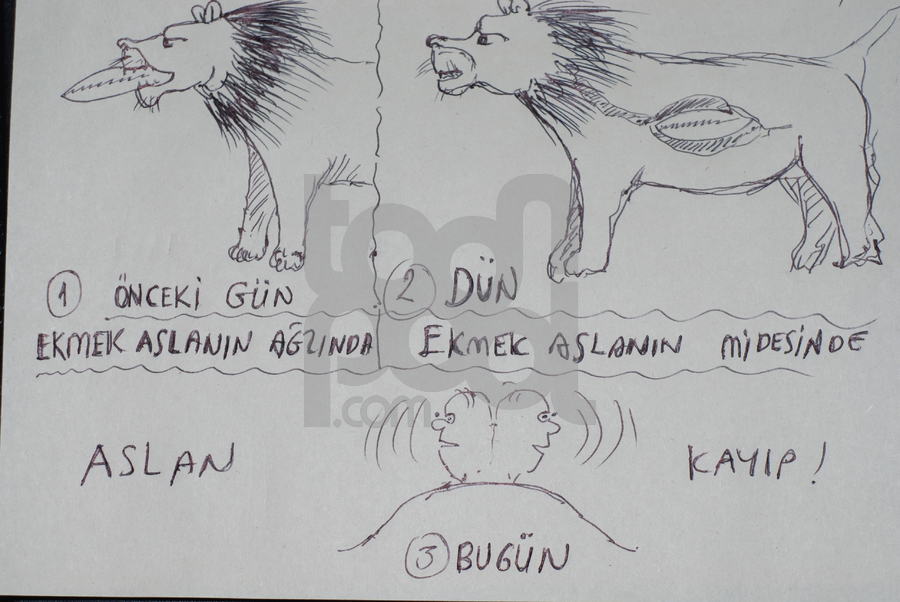 1 ÖNCEKİ GÜN
EKMEK ASLANIN AĞZINDA
2 DÜN
EKMEK ASLANIN MİDESİNDE
ASLAN
KAYIP!
3 BUGÜN
.com